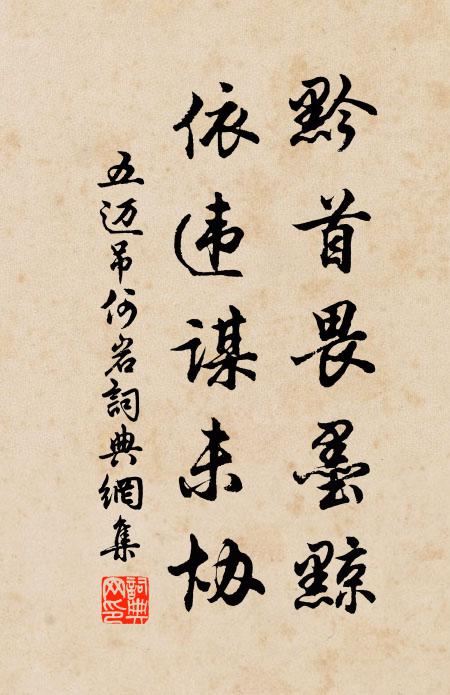 黔首畏墨黥
依违谋未协
五迈吊何岩詞典網集
詞典网印